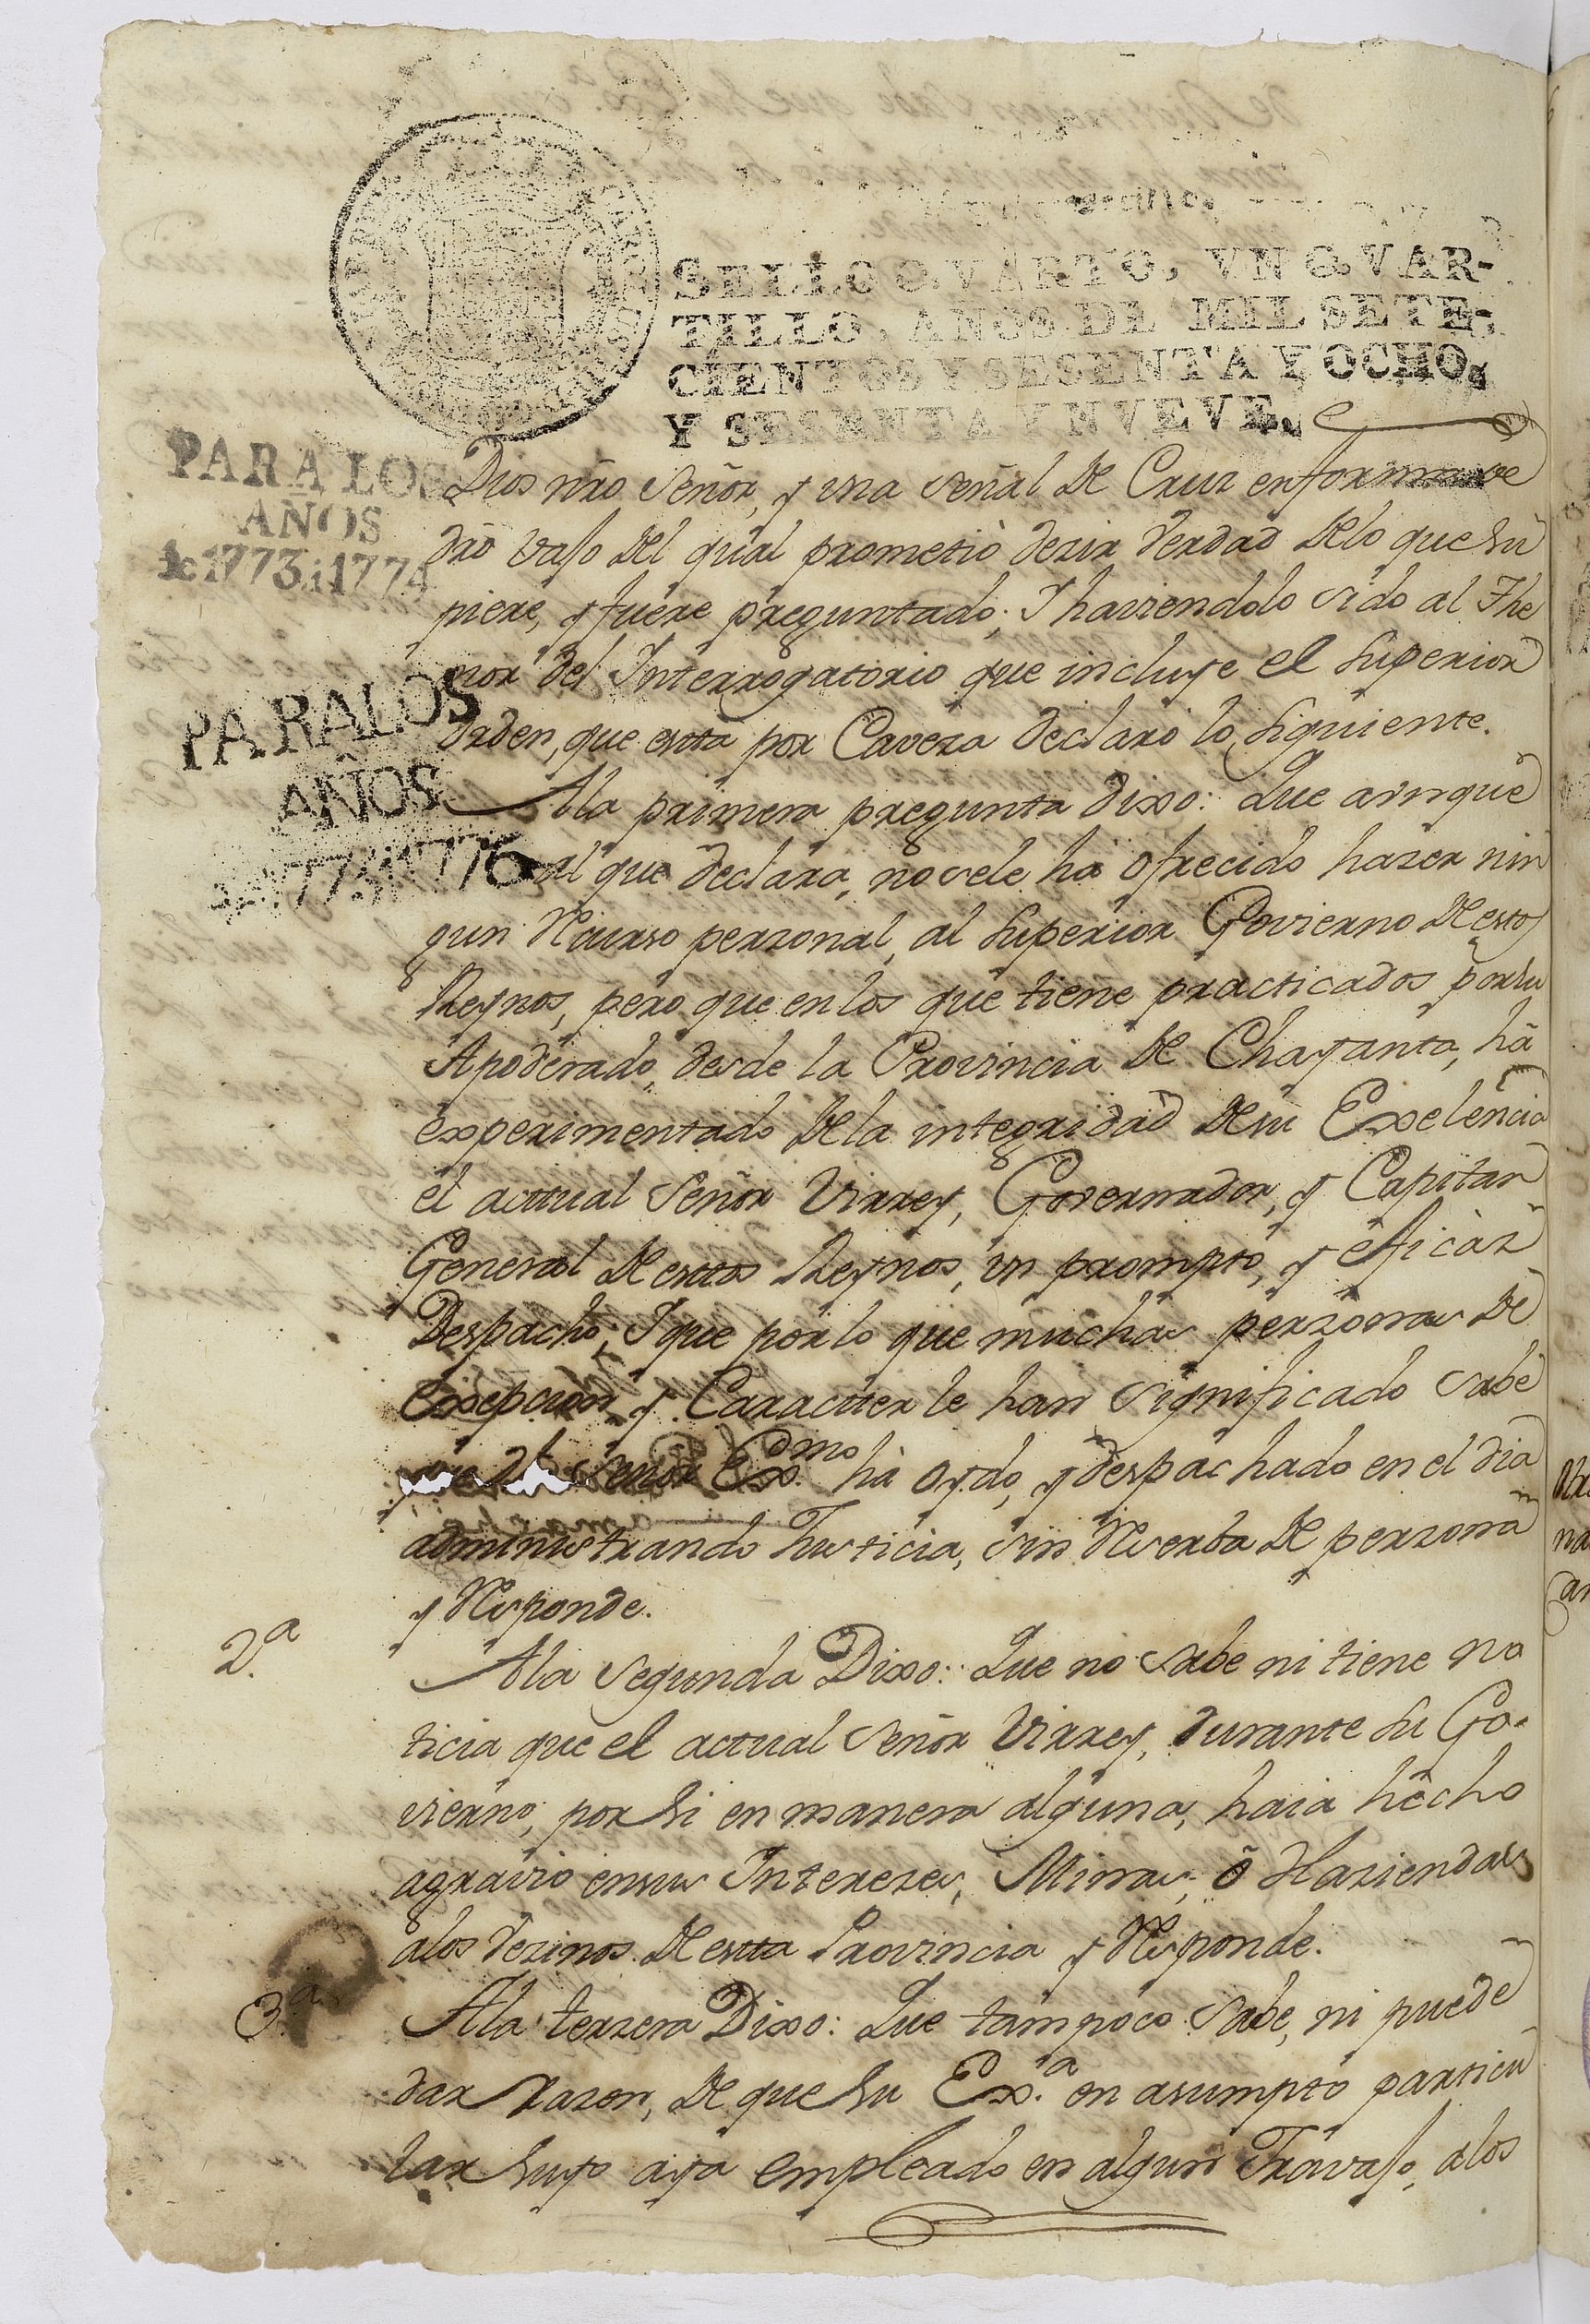 SELLO QVARTO, VN QVAR-
TILLO, AÑOS DE MIL SETE-
CIENTOS Y SESENTA Y OCHO,
Y SESENTA Y NVEVE.
PARA LOS
AÑOS
de 1773 i 1774
PARA LOS
AÑOS
1775 i 1776
Dios nrõ Señor, y una señal de Cruz en forma de
drõ vajo del qual prometió dezir verdad delo que su
piere, y fuere preguntado; Y haviendolo sido al The
nor del Interrogatorio que incluye el Superior
orden, que estta por Caveza declaro lo siguiente.
Ala primera pregunta dixo: Que aunque
al que declara, no sele ha ofrecido hazer nin
gun Recurso perzonal, al Superior Govierno de estos
Reynos, pero que en los que tiene practicados por su
Apoderado, desde la Provincia de Chayanta, hà
experimentado de la integridad de su Exelencia
el acttual Señor Virrey, Governador, y Capitan
General de esttos Reynos, un prompto, y eficàz
Despacho; Y que por lo que muchas perzonas de
exsepcion, y Caractter le han significado sabe
que dho Señor Exmo. hà oydo, y despachado en el dia
administrando Justicia, sin Reserba de perzona
y Responde.
2.a
Ala segunda Dixo: Que no sabe ni tiene no
ticia que el actual Señor Virrey, durante su Go-
vierno, por si en manera alguna, haia hecho
agravio ensus Interezes, Minas, ò Haziendas
alos vezinos de estta Provincia y Responde.
3.a
Ala terzera Dixo: Que tampoco sabe, ni puede
dar razon, de que su Ex.a en asumpto particu
lar suyo aya empleado en algun Travajo, alos